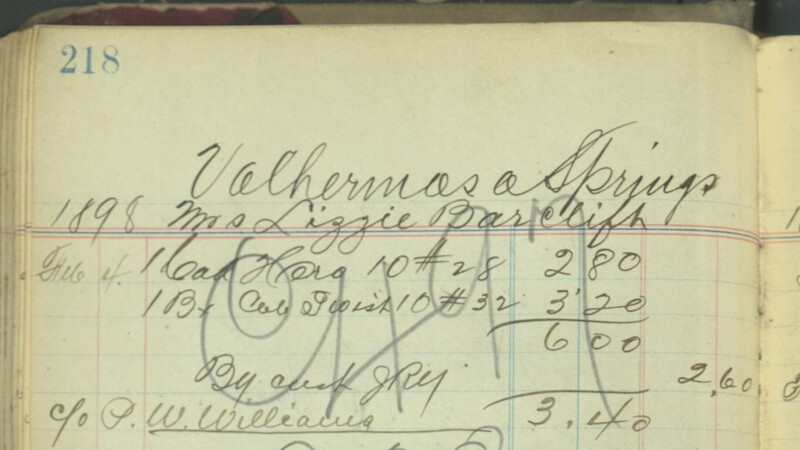 218
Valhermosa Springs
1898 Mrs Lizzie Barclift
Feb 4. 1 Cad 10 # 28 2 80
1 Bx Twist 10 # 32 3 20
6 00
By cash JRY 2,60
c/o P. W. Williams 3.40